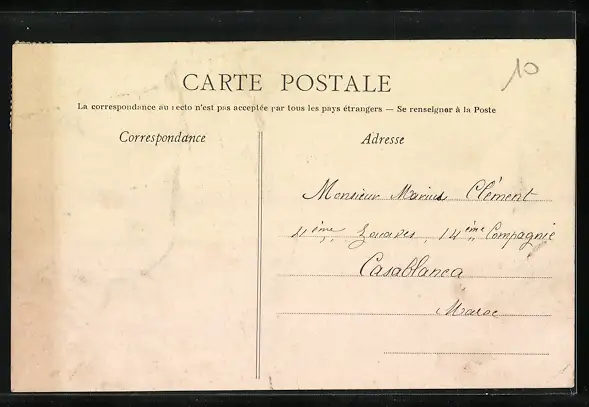 10
CARTE POSTALE
La correspondance au recto n'est pas acceptée par tous les pays étrangers — Se renseigner à la Poste
Correspondance
Adresse
Monsieur Marius Clément
4ème Zouaves, 14ème Compagnie
Casablanca
Maroc